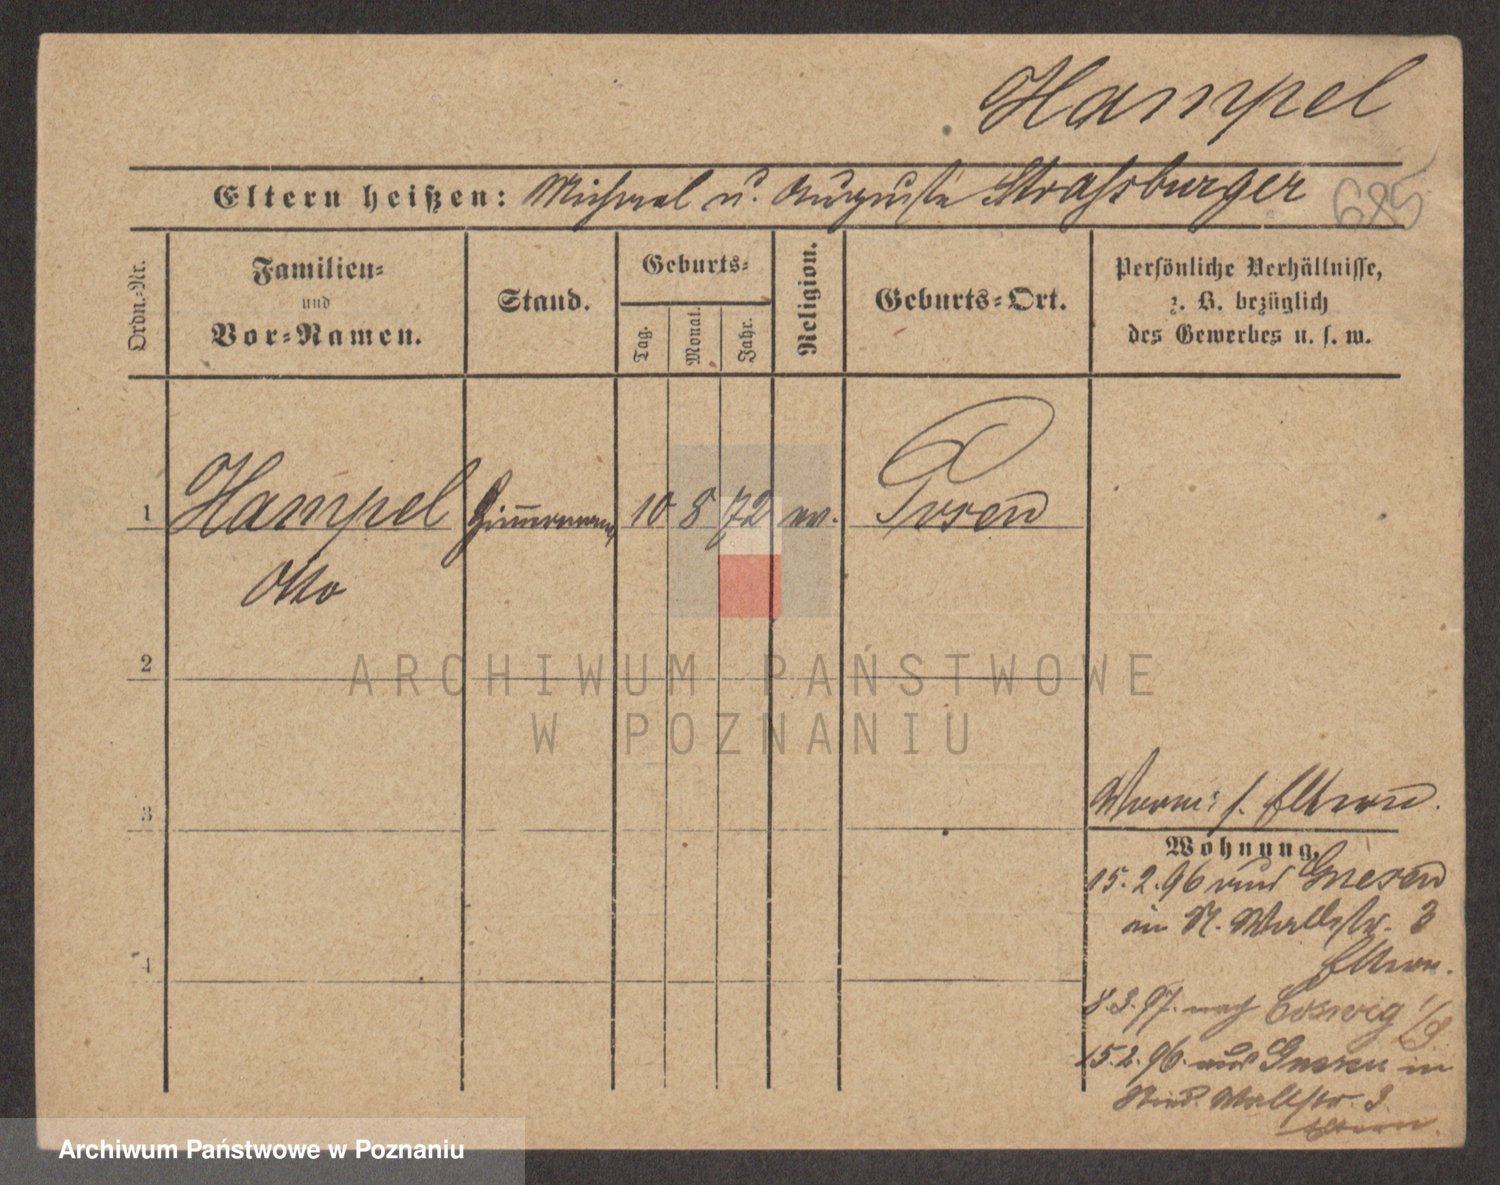 Hampel
Eltern heißen: Michael u. Auguste Strassburger
685
Ordn.-Nr.
Familien-
und
Vor-Namen.
Stand.
Geburts-
Tag.
Monat.
Jahr.
Religion.
Geburts-Ort.
Persönliche Verhältnisse,
z. B. bezüglich
des Gewerbes u. s. w.
1
Hampel
Otto
Zimmermann
10
8
72
ev.
Posen
2
3
4
s. Eltern.
Wohnung.
15.2.96 aus Gnesen
in N. Wallstr. 3
Eltern.
8.3.97. nach Coswig
15.2.96. aus Gnesen in
Wallstr. 3.
Eltern.
ARCHIWUM PAŃSTWOWE
W POZNANIU
Archiwum Państwowe w Poznaniu